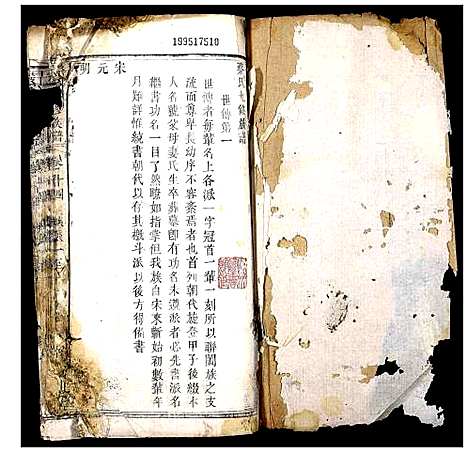 199517510
氏七修族譜
世傳第一
世傳者每輩名上各派一字冠首一輩一刻所以聯闔族之支
疏而尊卑長幼序不容紊焉者也首列朝代旋登甲子後綴本
人名號蒙母妻氏生卒葬墓即有功名未遵派者必先書派名
繼書功名一目了然瞭如指掌但我族自宋來新始初數輩年
月難詳惟統書朝代以有其概斗派以後方得備書
宋元明